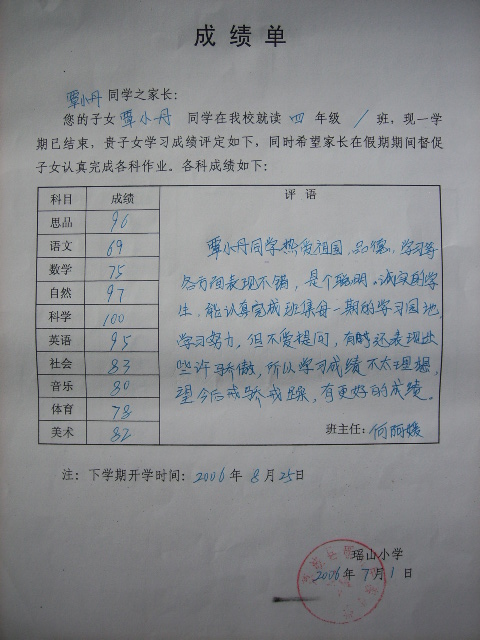 成绩单
覃小丹同学之家长：
您的子女覃小丹 同学在我校就读 四 年级 / 班，现一学
期已结束，贵子女学习成绩评定如下，同时希望家长在假期期间督促
子女认真完成各科作业。各科成绩如下：
科目 成绩 评语
思品 96
语文 69
数学 75
自然 97
科学 100
英语 95
社会 83
音乐 80
体育 78
美术 82
覃小丹同学热爱祖国，品德、学习等
各方面表现不错，是个聪明、诚实的学
生，能认真完成班集每一期的学习园地，
学习努力，但不爱提问，有时还表现出
些许骄傲，所以学习成绩不太理想，
望今后戒骄戒躁，有更好的成绩。
班主任：何阿媛
注：下学期开学时间：2006年8月25日
瑶山小学
2006年7月1日